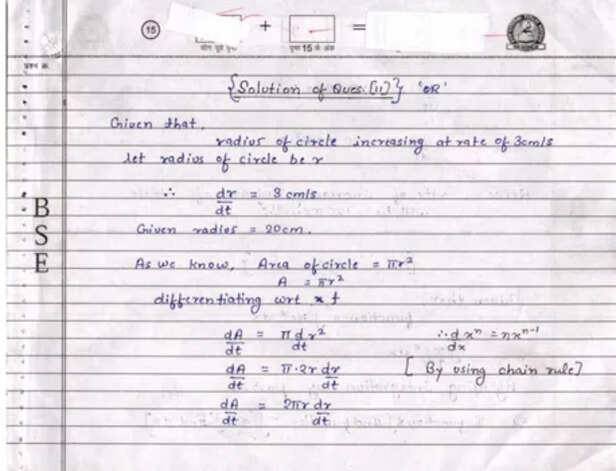 15 + =
पृष्ठ 15 के अंक
प्रश्न क्र.
{Solution of Ques.(11)} 'OR'
Given that,
radius of circle increasing at rate of 3cm/s
let radius of circle be r
∴ dr/dt = 3 cm/s
Given radius = 20cm.
As we know, Area of circle = πr²
A = πr²
differentiating wrt t
dA/dt = π d r²/dt ∴ d/dx xⁿ = nxⁿ⁻¹
dA/dt = π·2r dr/dt [By using chain rule]
dA/dt = 2πr dr/dt
B
S
E